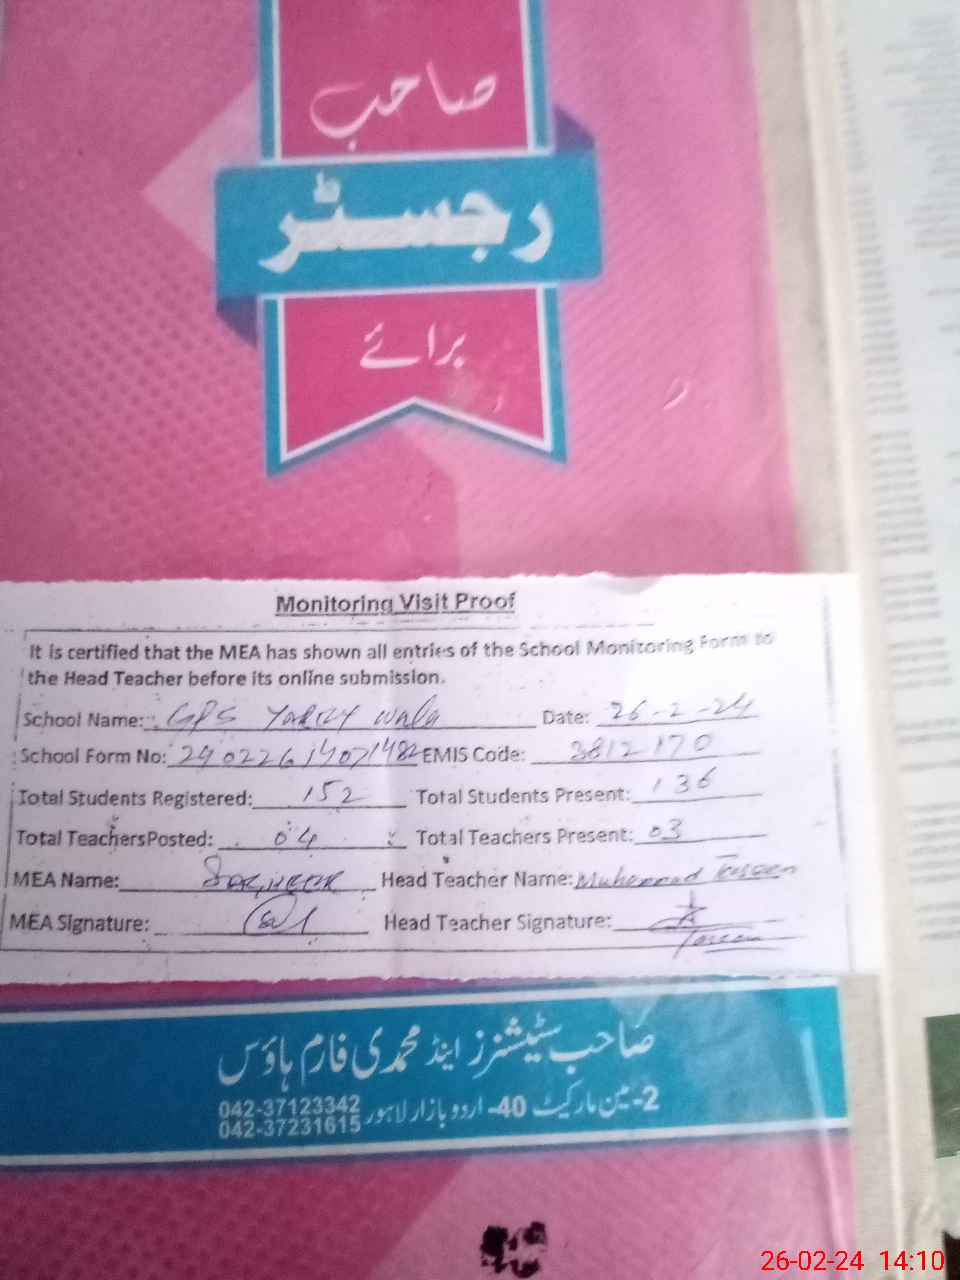 صاحب
رجسٹر
برائے
Monitoring Visit Proof
It is certified that the MEA has shown all entries of the School Monitoring Form to
the Head Teacher before its online submission.
School Name: GPS Wala Date: 26-2-24
School Form No: 24022614071482 EMIS Code: 3812170
Total Students Registered: 152 Total Students Present: 136
Total TeachersPosted: 04 Total Teachers Present: 03
MEA Name: Head Teacher Name: Muhammad
MEA Signature: Head Teacher Signature:
صاحب سٹیشنرز اینڈ محمدی فارم ہاؤس
2-مین مارکیٹ 40- اردو بازار لاہور 042-37123342
042-37231615
26-02-24 14:10